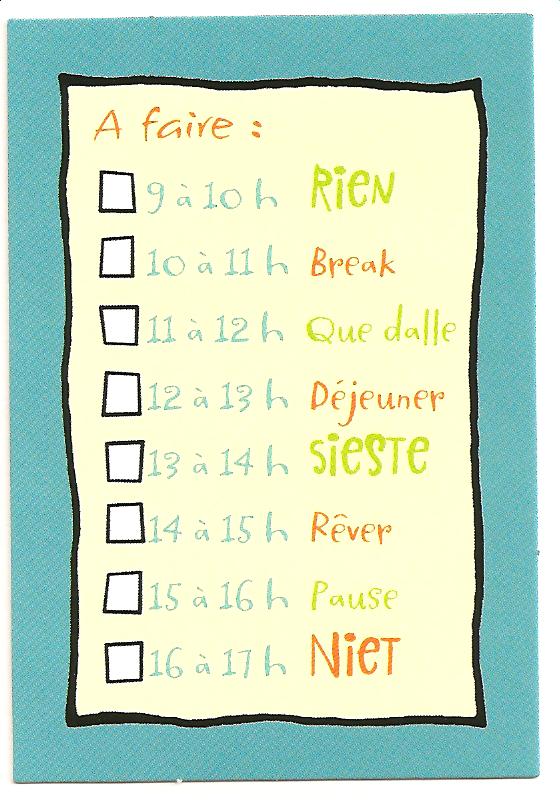 A faire :
9 à 10 h RieN
10 à 11 h Break
11 à 12 h Que dalle
12 à 13 h Déjeuner
13 à 14 h SieSTE
14 à 15 h Rêver
15 à 16 h Pause
16 à 17 h NieT